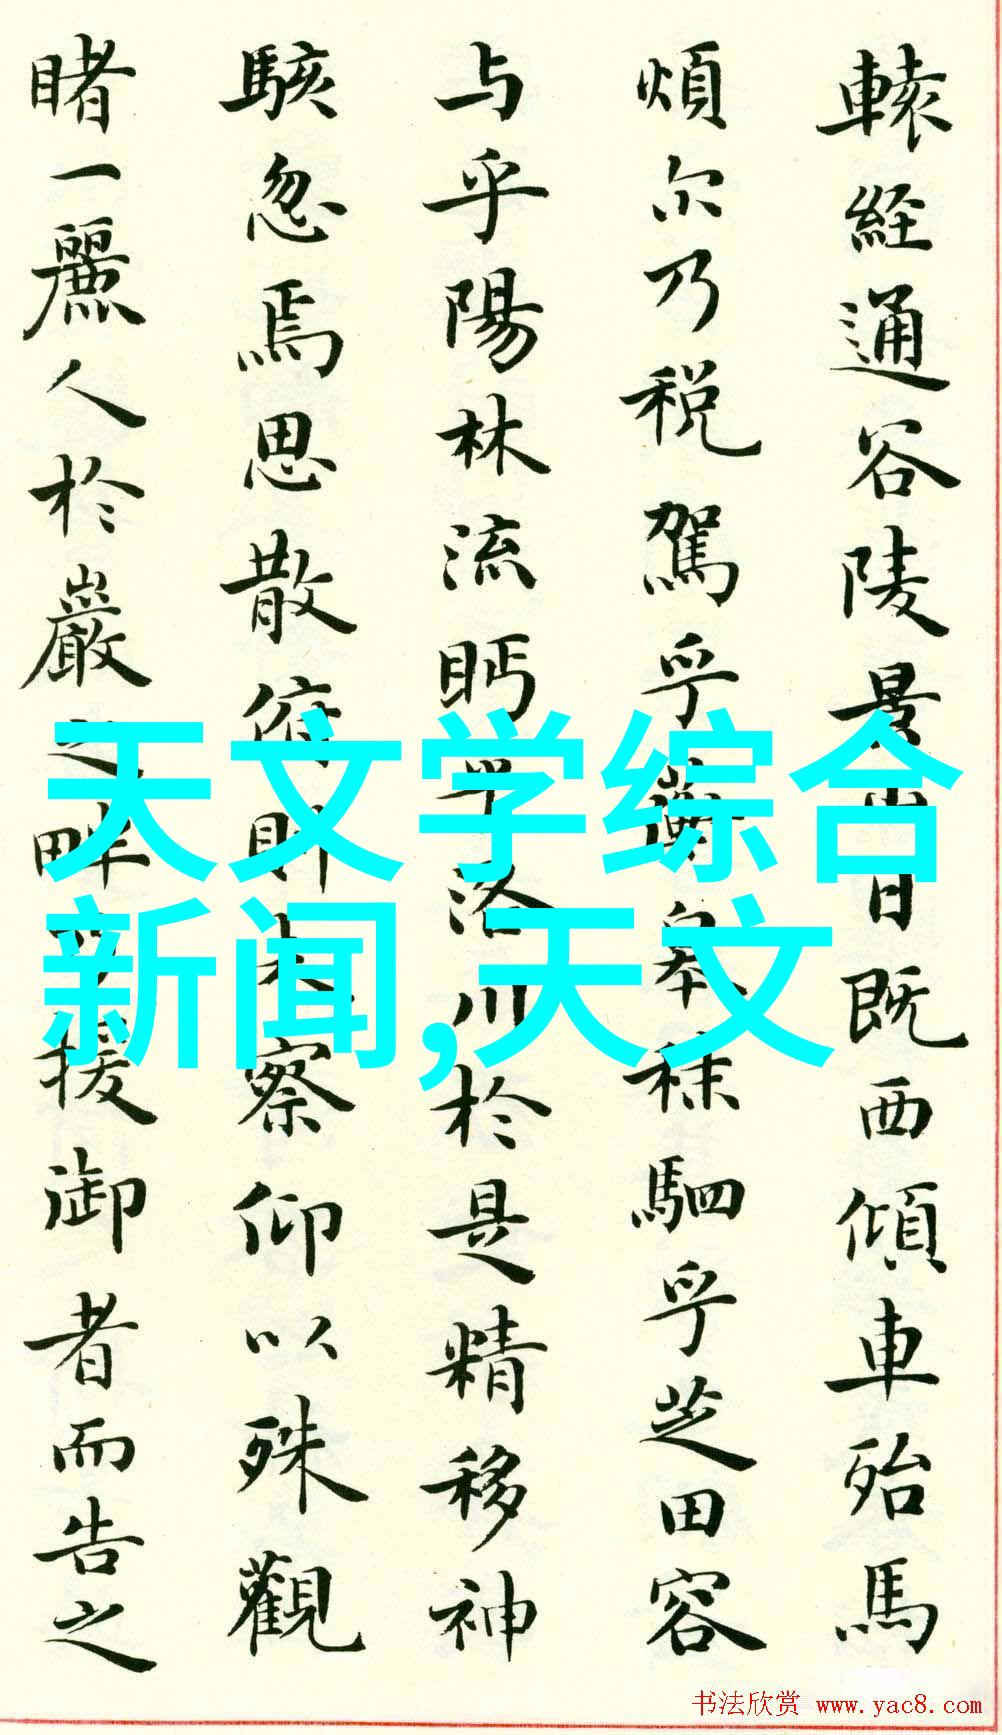 轅経通谷陵景山日既西傾車殆馬
煩尔乃税駕乎蘅皋秣駟乎芝田容
与乎陽林流眄乎洛川於是精移神
駭忽焉思散俯則未察仰以殊觀
睹一麗人於巖之畔乃援御者而告之
天文学综合
新闻,天文
书法欣赏 www.yac8.com